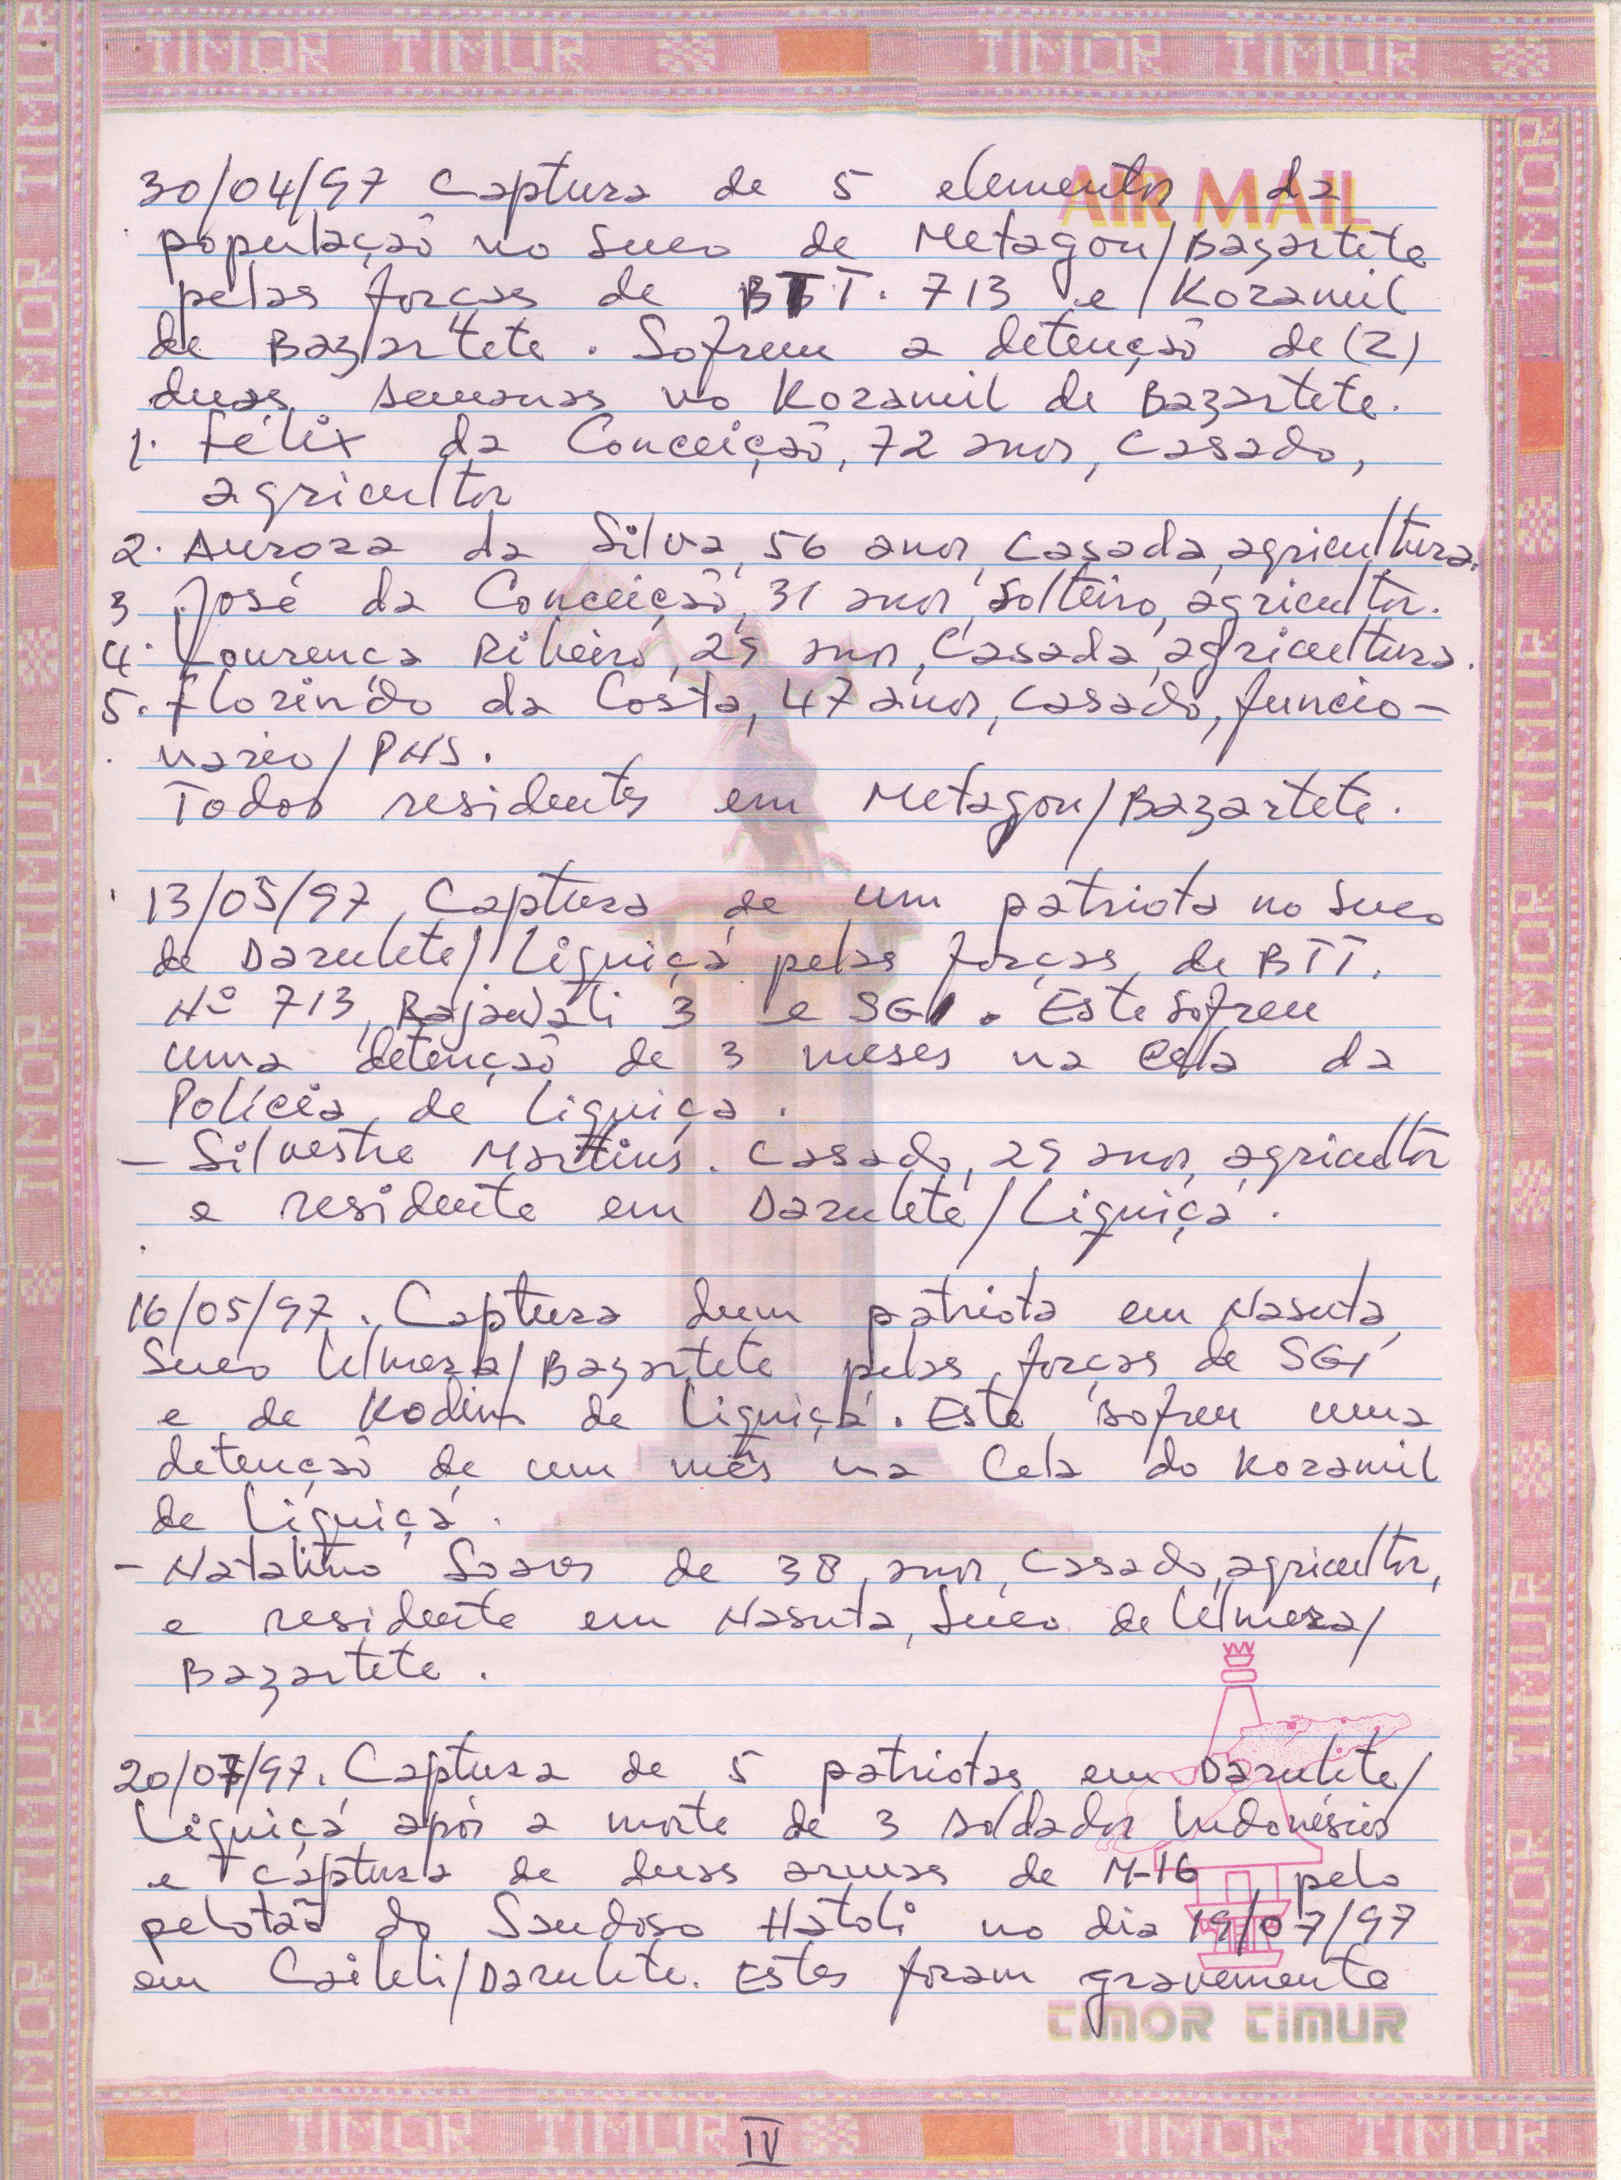 TIMOR TIMUR TIMOR TIMUR
AIR MAIL
30/04/97 Captura de 5 elementos da
população no Suco de Metagou/Bazartete
pelas forças de BTT. 713 e Koramil
de Bazartete. Sofrem a detenção de (2)
duas semanas no Koramil de Bazartete.
1. Félix da Conceição, 72 anos, casado,
agricultor
2. Aurora da Silva, 56 anos, casada, agricultura.
3 José da Conceição, 31 anos, solteiro, agricultor.
4. Lourença Ribeiro, 29 anos, Casada, agricultura.
5. Florindo da Costa, 47 anos, casado, funcio-
nario/PNS.
Todos residentes em Metagou/Bazartete.
13/05/97, Captura de um patriota no Suco
de Darulete/Liquiçá pelas forças de BTT.
Nº 713, Rajawali 3 e SGI. Este sofreu
uma detenção de 3 meses na Cela da
Polícia de Liquiça.
- Silvestre Martins. Casado, 29 anos, agricultor
e residente em Darulete/Liquiçá.
16/05/97. Captura dum patriota em Nasuta,
Suco Ulmera/Bazartete pelas forças de SGI
e de Kodim de Liquiçá. Este sofreu uma
detenção de um mês na Cela do Koramil
de Liquiçá.
- Natalino Soares de 38 anos, casado, agricultor,
e residente em Nasuta, Suco de Ulmera/
Bazartete.
20/07/97. Captura de 5 patriotas em Darulete/
Liquiçá, após a morte de 3 soldados Indonésios
e captura de duas armas de M-16, pelo
pelotão do Saudoso Hatoli no dia 19/07/97
em Caileli/Darulete. Estes foram gravemente
TIMOR TIMUR
TIMOR TIMUR TIMOR TIMUR
IV